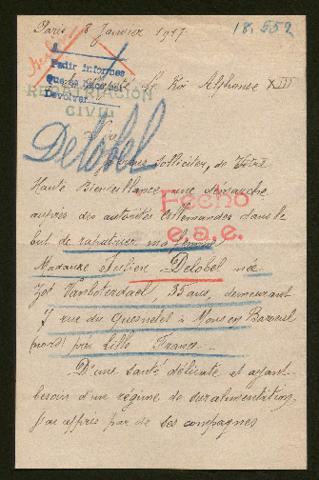 Paris 8 Janvier 1917
18,552
Pedir informes
Que se hace
Devolver
REPATRIACIÓN
CIVIL
Roi Alphonse XIII
Delobel
solliciter, de Votre
Haute Bienveillance, une démarche
auprès des autorités Allemandes dans le
but de rapatrier ma femme
Fecho
e.a.e.
Madame Julien Delobel née
Zoé Vanboterdael, 35 ans, demeurant
7 rue du Quesnelet à Mons en Baroeul
(nord) près Lille France
D'une santé délicate et ayant
besoin d'un régime de suralimentation,
j'ai appris par de ses compagnes